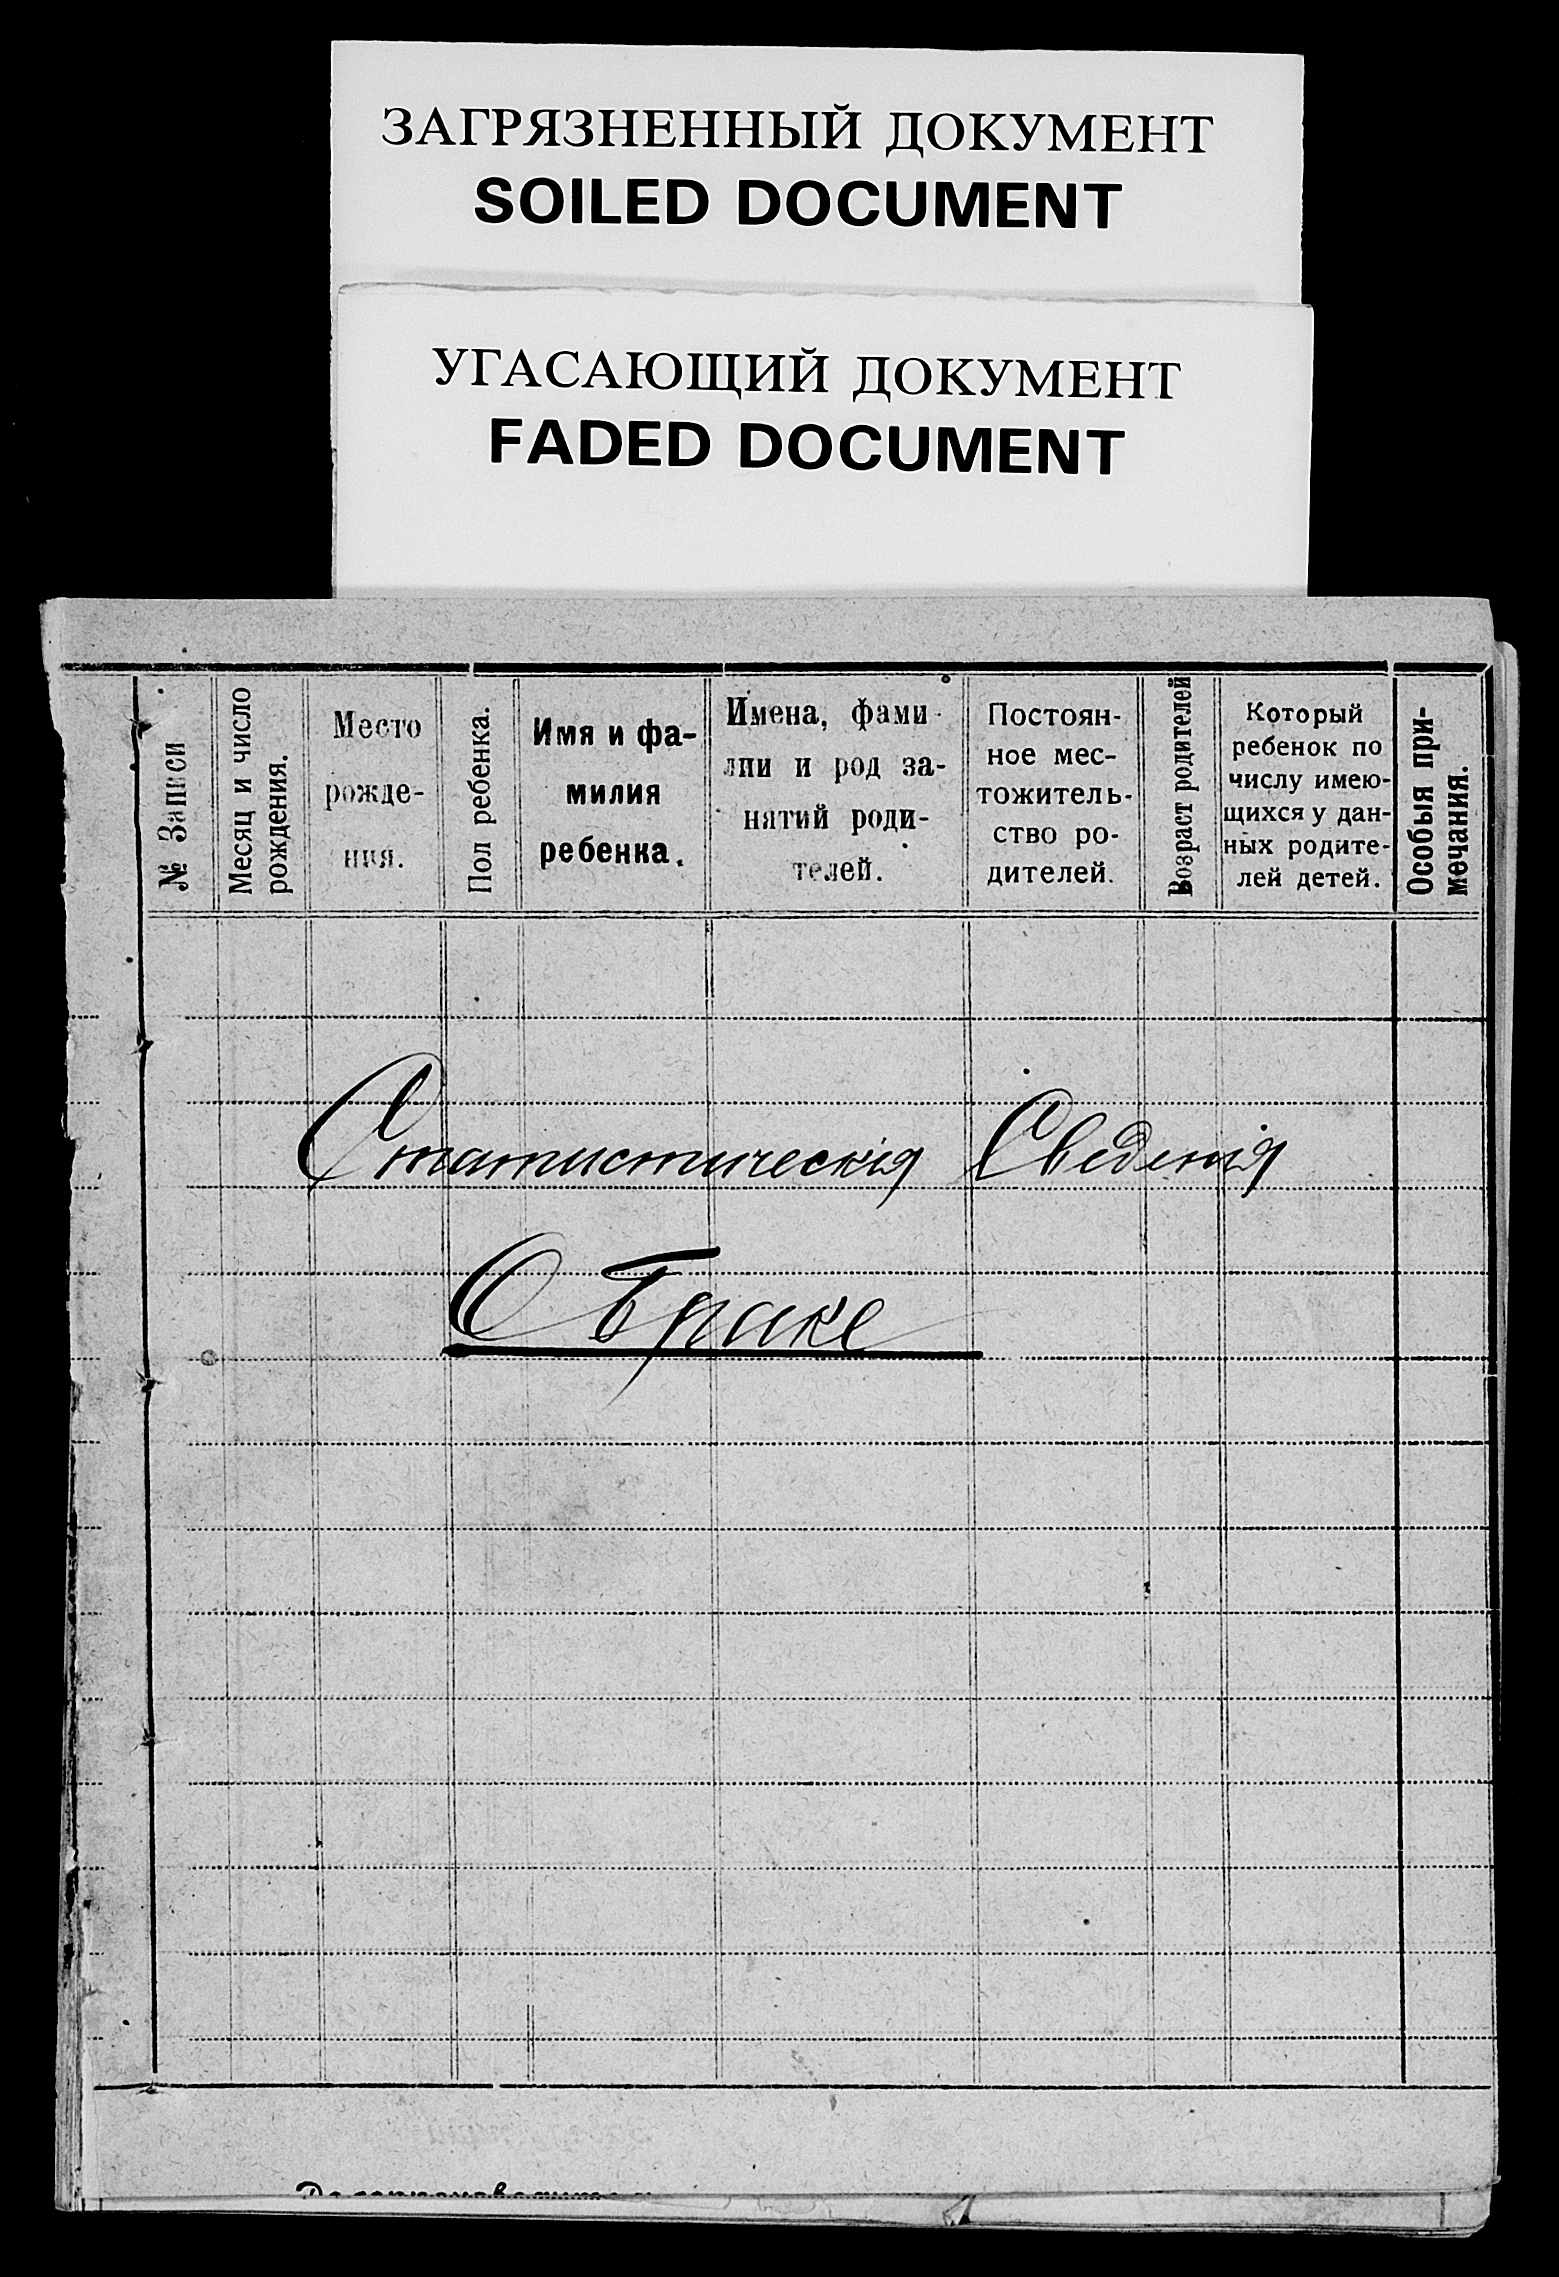 ЗАГРЯЗНЕННЫЙ ДОКУМЕНТ
SOILED DOCUMENT
УГАСАЮЩИЙ ДОКУМЕНТ
FADED DOCUMENT
№ Записи
Месяц и число
рождения.
Место
рожде-
ния.
Пол ребенка.
Имя и фа-
милия
ребенка.
Имена, фами-
лии и род за-
нятий роди-
телей.
Постоян-
ное мес-
тожитель-
ство ро-
дителей.
Возраст родителей
Который
ребенок по
числу имею-
щихся у дан-
ных родите-
лей детей.
Особыя при-
мечания.
Статистическія Сведенія
О Браке